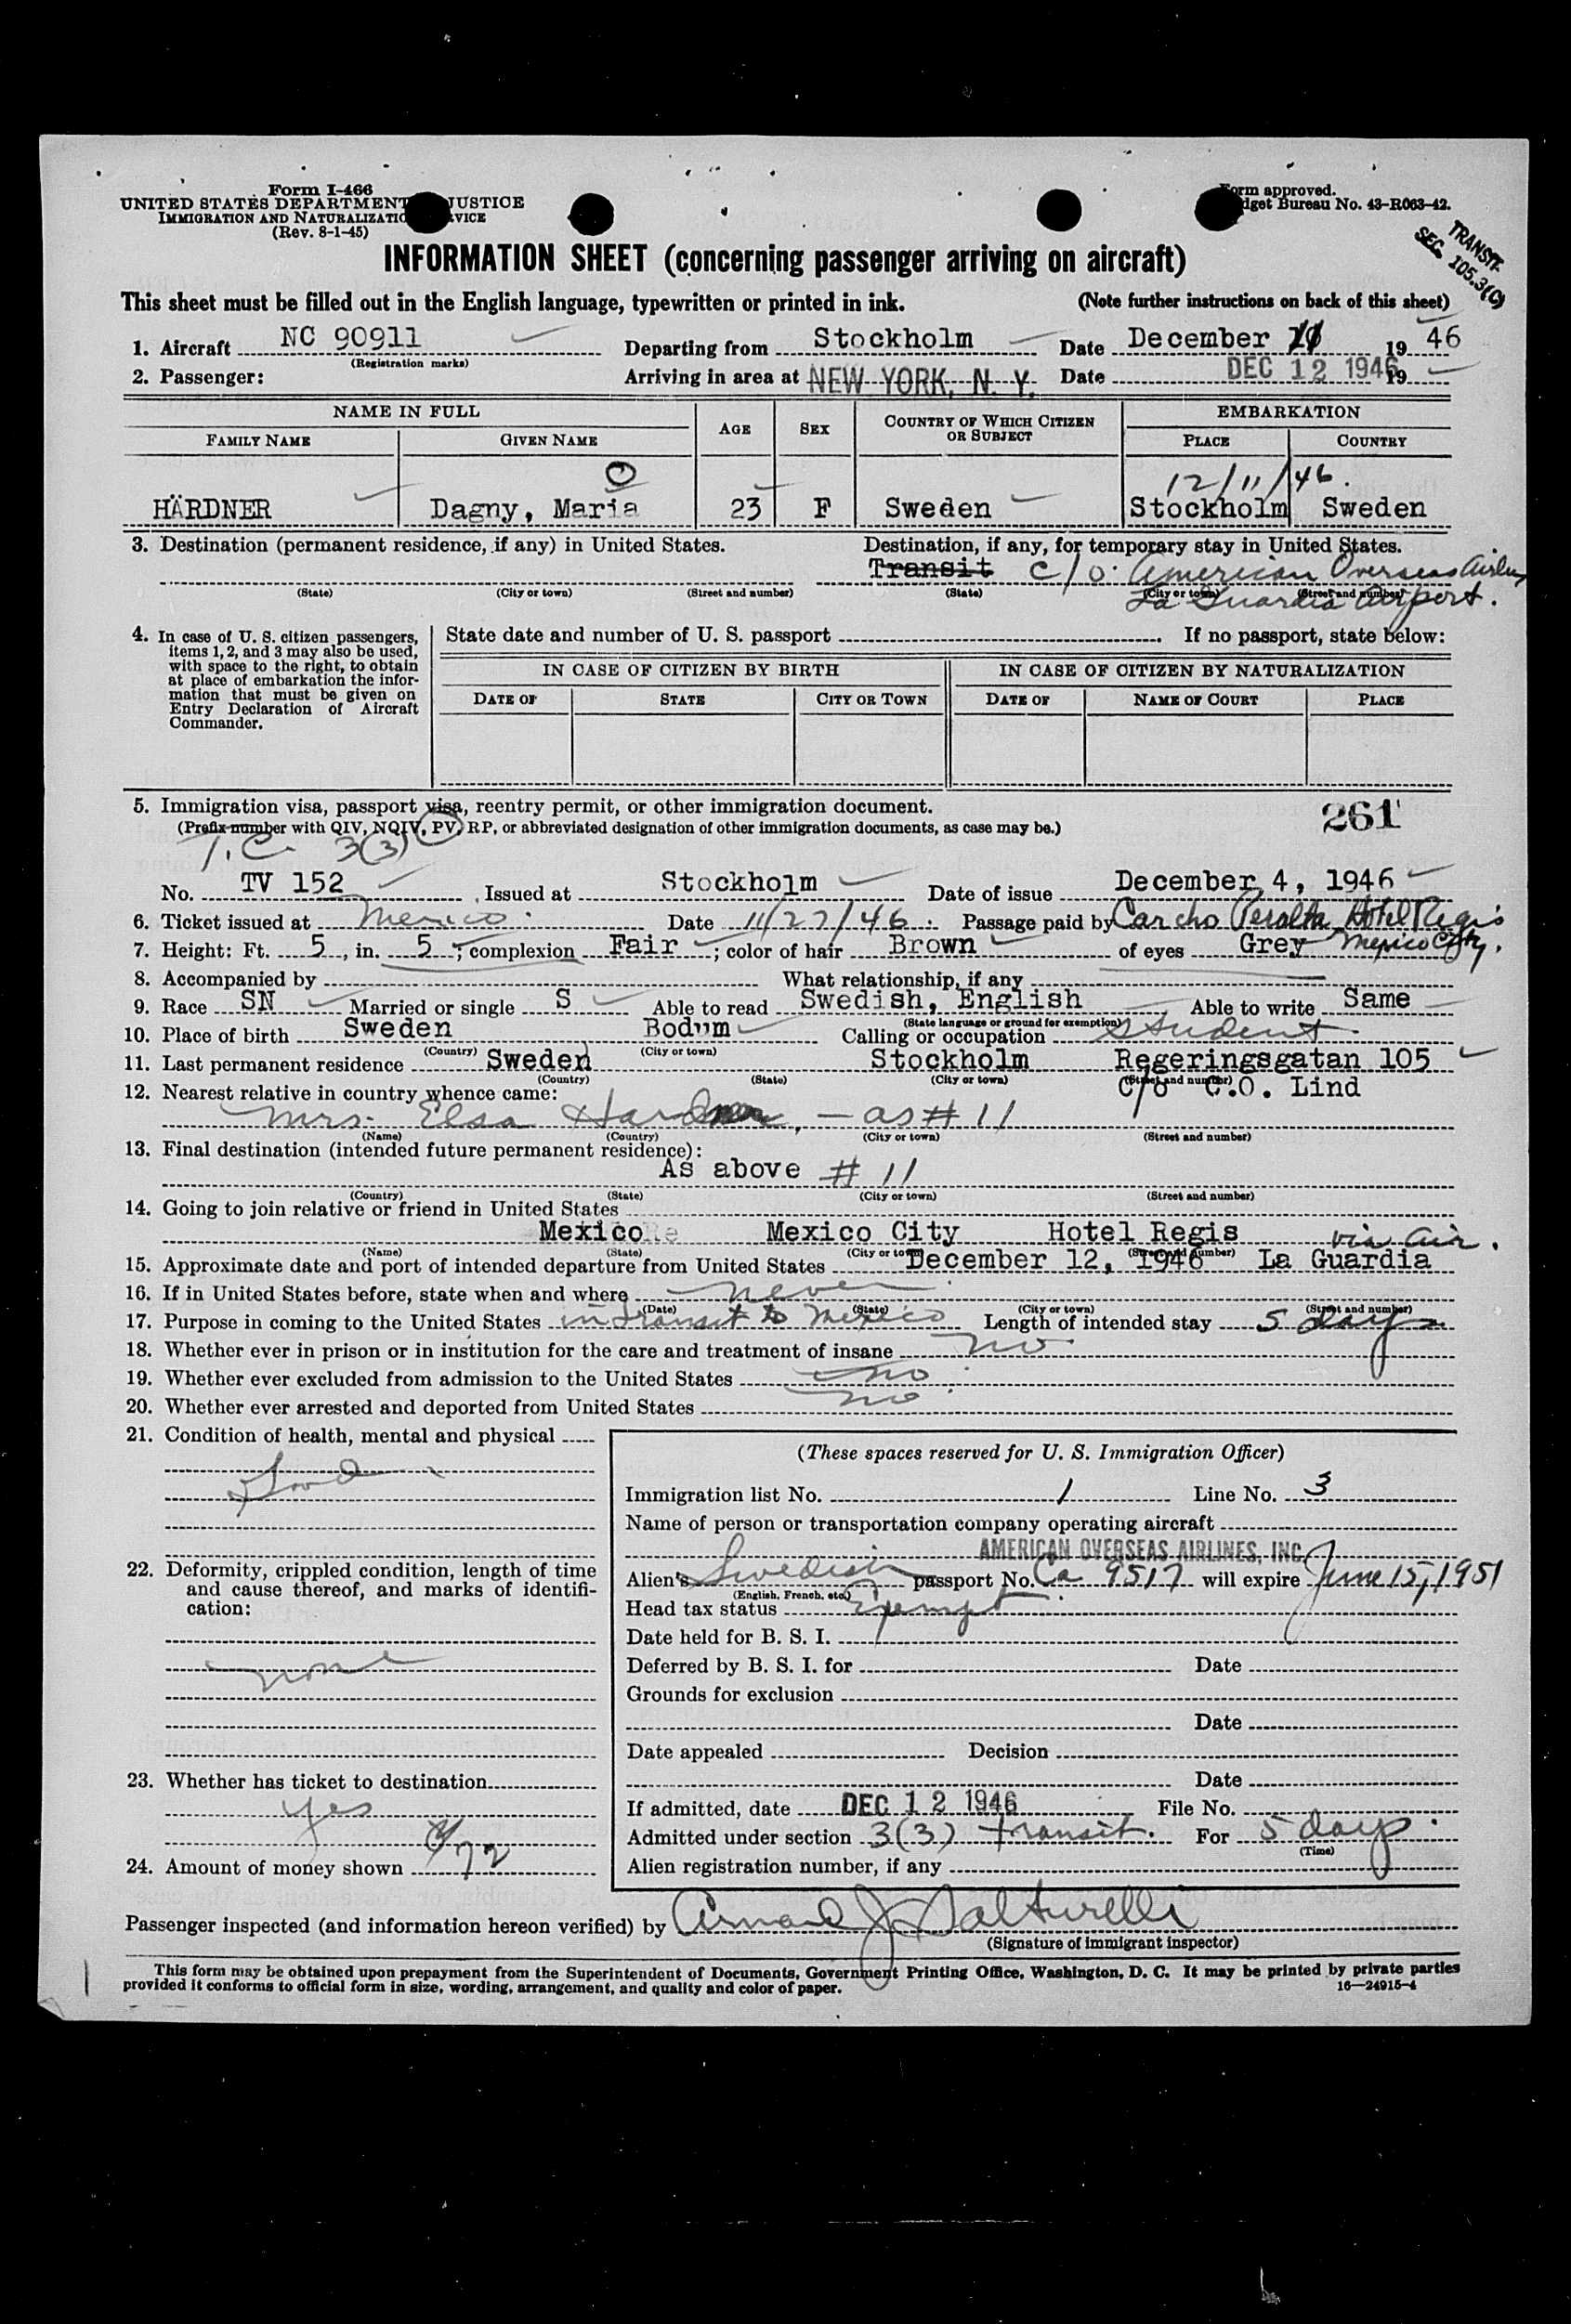 Form I-466
UNITED STATES DEPARTMENT JUSTICE
IMMIGRATION AND NATURALIZATIO VICE
(Rev. 8-1-45)
Form approved.
dget Bureau No. 43-R063-42.
TRANSIT
SEC. 105.3(C)
INFORMATION SHEET (concerning passenger arriving on aircraft)
This sheet must be filled out in the English language, typewritten or printed in ink. (Note further instructions on back of this sheet)
1. Aircraft NC 90911 Departing from Stockholm Date December 1946
(Registration marks)
2. Passenger: Arriving in area at NEW YORK, N. Y. Date DEC 12 1946 19
NAME IN FULL AGE SEX COUNTRY OF WHICH CITIZEN OR SUBJECT EMBARKATION
FAMILY NAME GIVEN NAME PLACE COUNTRY
12/11/46.
HÄRDNER Dagny, Maria 23 F Sweden Stockholm Sweden
3. Destination (permanent residence, if any) in United States. Destination, if any, for temporary stay in United States.
Transit c/o American Overseas Airlines
(State) (City or town) (Street and number) (State) (City or town) (Street and number)
La Guardia Airport.
4. In case of U. S. citizen passengers, items 1, 2, and 3 may also be used, with space to the right, to obtain at place of embarkation the information that must be given on Entry Declaration of Aircraft Commander.
State date and number of U. S. passport . If no passport, state below:
IN CASE OF CITIZEN BY BIRTH IN CASE OF CITIZEN BY NATURALIZATION
DATE OF STATE CITY OR TOWN DATE OF NAME OF COURT PLACE
5. Immigration visa, passport visa, reentry permit, or other immigration document. 261
(Prefix number with QIV, NQIV, PV, RP, or abbreviated designation of other immigration documents, as case may be.)
T.C. 3(3)
No. TV 152 Issued at Stockholm Date of issue December 4, 1946
6. Ticket issued at Mexico. Date 11/27/46. Passage paid by Carcho Peralta Hotel Regis
Mexico City.
7. Height: Ft. 5, in. 5; complexion Fair; color of hair Brown of eyes Grey
8. Accompanied by What relationship, if any
9. Race SN Married or single S Able to read Swedish, English Able to write Same
(State language or ground for exemption)
10. Place of birth Sweden Bodum Calling or occupation Student
(Country) (City or town)
11. Last permanent residence Sweden Stockholm Regeringsgatan 105
(Country) (State) (City or town) (Street and number)
c/o C.O. Lind
12. Nearest relative in country whence came:
Mrs. Elsa Hardner, - as # 11
(Name) (Country) (City or town) (Street and number)
13. Final destination (intended future permanent residence):
As above # 11
(Country) (State) (City or town) (Street and number)
14. Going to join relative or friend in United States
Mexico Mexico City Hotel Regis via air.
(Name) (State) (City or town) (Street and number)
15. Approximate date and port of intended departure from United States December 12, 1946 La Guardia
16. If in United States before, state when and where never
(Date) (State) (City or town) (Street and number)
17. Purpose in coming to the United States in transit to Mexico Length of intended stay 5 days
18. Whether ever in prison or in institution for the care and treatment of insane no
19. Whether ever excluded from admission to the United States no
20. Whether ever arrested and deported from United States no
21. Condition of health, mental and physical
Good
22. Deformity, crippled condition, length of time and cause thereof, and marks of identification:
none
23. Whether has ticket to destination
yes
24. Amount of money shown 72
(These spaces reserved for U. S. Immigration Officer)
Immigration list No. 1 Line No. 3
Name of person or transportation company operating aircraft
AMERICAN OVERSEAS AIRLINES, INC.
Alien's Swedish passport No. Ca 9517 will expire June 15, 1951
(English, French, etc.)
Head tax status Exempt
Date held for B. S. I.
Deferred by B. S. I. for Date
Grounds for exclusion
Date
Date appealed Decision
Date
If admitted, date DEC 12 1946 File No.
Admitted under section 3(3) transit. For 5 days.
(Time)
Alien registration number, if any
Passenger inspected (and information hereon verified) by
(Signature of immigrant inspector)
This form may be obtained upon prepayment from the Superintendent of Documents, Government Printing Office, Washington, D. C. It may be printed by private parties
provided it conforms to official form in size, wording, arrangement, and quality and color of paper. 16—24915-4